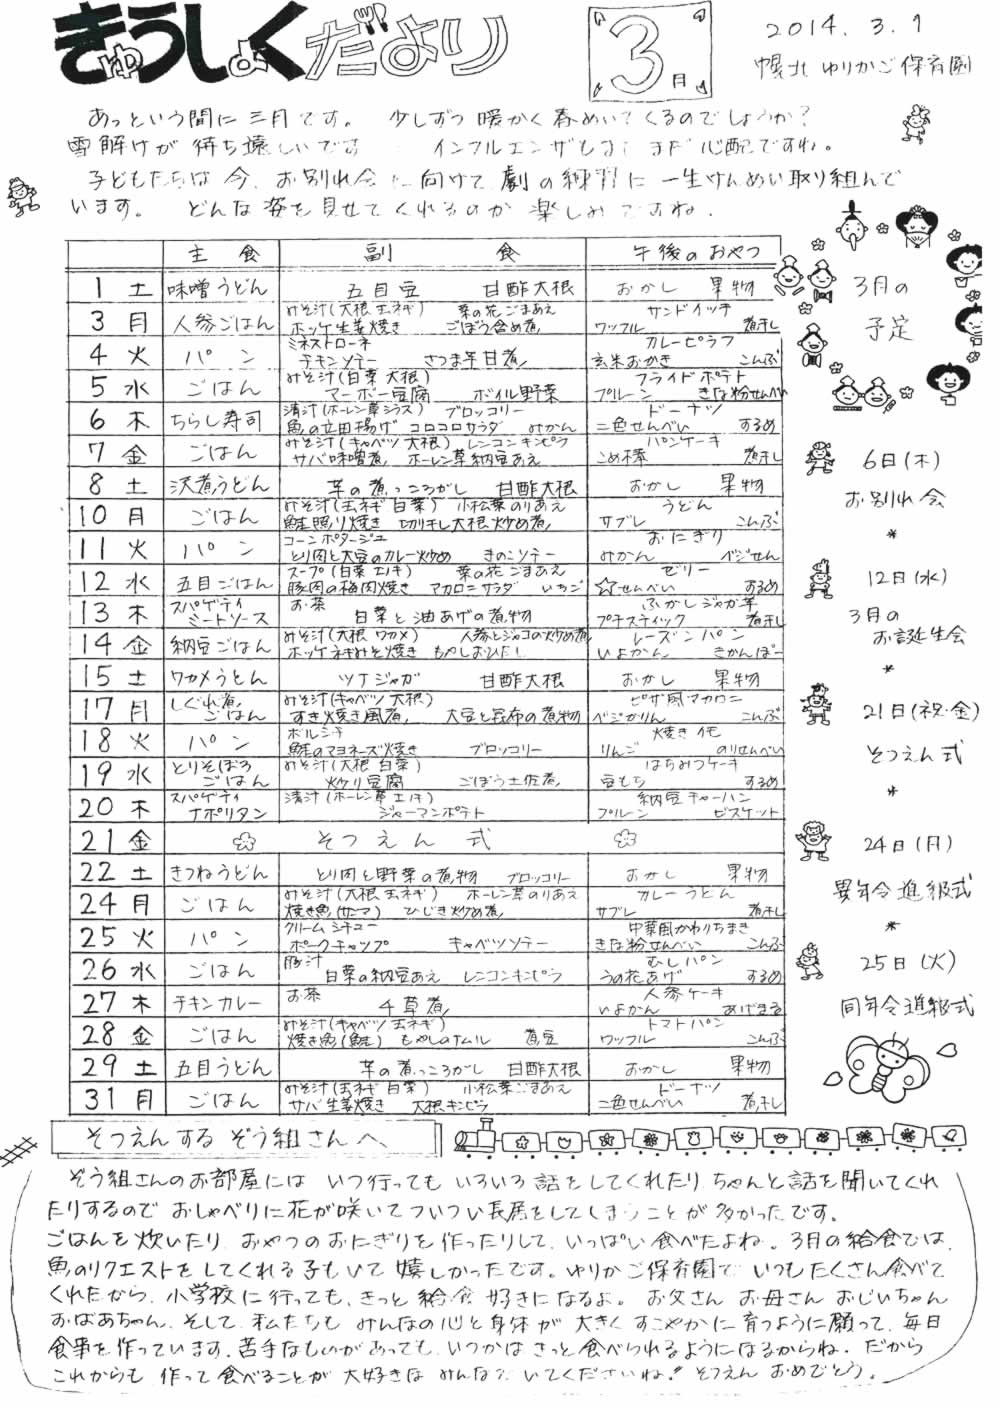 きゅうしょくだより
3月
2014.3.1
幌北ゆりかご保育園
あっという間に三月です。 少しずつ暖かく春めいてくるのでしょうか?
雪解けが待ち遠しいです インフルエンザもまだまだ心配ですね。
子どもたちは今、お別れ会に向けて劇の練習に一生けんめい取り組んで
います。 どんな姿を見せてくれるのか楽しみですね。
主食 副食 午後のおやつ
1 土 味噌うどん 五目豆 甘酢大根 おかし 果物
3 月 人参ごはん みそ汁(大根 玉ネギ) 菜の花ごまあえ サンドイッチ
ホッケ生姜焼き ごぼう含め煮 ワッフル 煮干し
4 火 パン ミネストローネ カレーピラフ
チキンソテー さつま芋甘煮 玄米おかき こんぶ
5 水 ごはん みそ汁(白菜 大根) フライドポテト
マーボー豆腐 ボイル野菜 プルーン きな粉せんべい
6 木 ちらし寿司 清汁(ホーレン草 シラス) ブロッコリー ドーナツ
魚の立田揚げ コロコロサラダ みかん 二色せんべい するめ
7 金 ごはん みそ汁(キャベツ 大根) レンコンキンピラ パンケーキ
サバ味噌煮 ホーレン草納豆あえ こめ棒 煮干し
8 土 沢煮うどん 芋の煮っころがし 甘酢大根 おかし 果物
10 月 ごはん みそ汁(玉ネギ 白菜) 小松菜のりあえ うどん
鮭照り焼き 切干し大根炒め煮 サブレ こんぶ
11 火 パン コーンポタージュ おにぎり
とり肉と大豆のカレー炒め きのこソテー みかん ベジせん
12 水 五目ごはん スープ(白菜 エノキ) 菜の花ごまあえ ゼリー
豚肉の梅肉焼き マカロニサラダ いちご ☆せんべい するめ
13 木 スパゲティミートソース お茶 ふかしジャガ芋
白菜と油あげの煮物 プチスティック 煮干し
14 金 納豆ごはん みそ汁(大根 ワカメ) 人参とジャコの炒め煮 レーズンパン
ホッケネギみそ焼き もやしおひたし いよかん きかんぼー
15 土 ワカメうどん ツナジャガ 甘酢大根 おかし 果物
17 月 しぐれ煮ごはん みそ汁(キャベツ 大根) ピザ風マカロニ
すき焼き風煮 大豆と昆布の煮物 ベジかりん こんぶ
18 火 パン ボルシチ 焼きイモ
鮭のマヨネーズ焼き ブロッコリー りんご のりせんべい
19 水 とりそぼろごはん みそ汁(大根 白菜) はちみつケーキ
炒り豆腐 ごぼう土佐煮 豆もち するめ
20 木 スパゲティナポリタン 清汁(ホーレン草 エノキ) 納豆チャーハン
ジャーマンポテト プルーン ビスケット
21 金 そつえん式
22 土 きつねうどん とり肉と野菜の煮物 ブロッコリー おかし 果物
24 月 ごはん みそ汁(大根 玉ネギ) ホーレン草のりあえ カレーうどん
焼き魚(サンマ) ひじき炒め煮 サブレ 煮干し
25 火 パン クリームシチュー 中華風かわりちまき
ポークチャップ キャベツソテー きな粉せんべい こんぶ
26 水 ごはん 豚汁 むしパン
白菜の納豆あえ レンコンキンピラ うの花あげ するめ
27 木 チキンカレー お茶 人参ケーキ
千草煮 いよかん あげきる
28 金 ごはん みそ汁(キャベツ 玉ネギ) トマトパン
焼き魚(鮭) もやしのナムル 煮豆 ワッフル こんぶ
29 土 五目うどん 芋の煮っころがし 甘酢大根 おかし 果物
31 月 ごはん みそ汁(玉ネギ 白菜) 小松菜ごまあえ ドーナツ
サバ生姜焼き 大根キンピラ 二色せんべい 煮干し
3月の
予定
6日(木)
お別れ会
*
12日(水)
3月の
お誕生会
*
21日(祝・金)
そつえん式
*
24日(月)
異年令進級式
*
25日(火)
同年令進級式
そつえんする ぞう組さんへ
ぞう組さんのお部屋には いつ行っても いろいろ話をしてくれたり ちゃんと話を聞いてくれ
たりするので おしゃべりに花が咲いてついつい長居をしてしまうことが多かったです。
ごはんを炊いたり、おやつのおにぎりを作ったりして、いっぱい食べたよね。3月の給食では、
魚のリクエストをしてくれる子もいて嬉しかったです。ゆりかご保育園でいつもたくさん食べて
くれたから、小学校に行っても、きっと給食好きになるよ。お父さん お母さん おじいちゃん
おばあちゃん、そして、私たちも みんなの心と身体が大きくすこやかに育つように願って、毎日
食事を作っています。苦手なものがあっても、いつかはきっと食べられるようになるからね。だから
これからも 作って食べることが 大好きな みんなでいてくださいね!そつえん おめでとう。